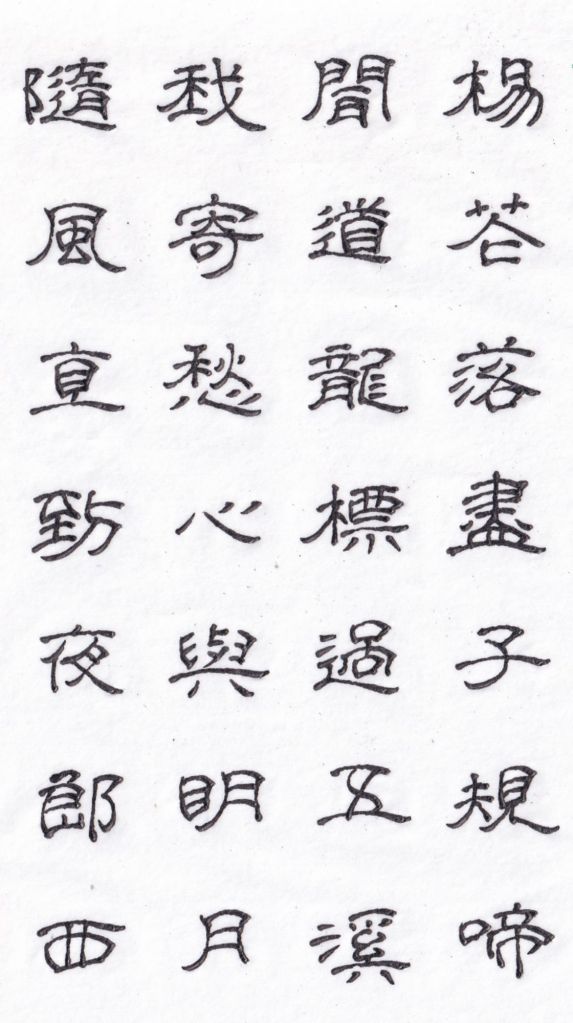 楊花落盡子規啼
聞道龍標過五溪
我寄愁心與明月
隨風直到夜郎西